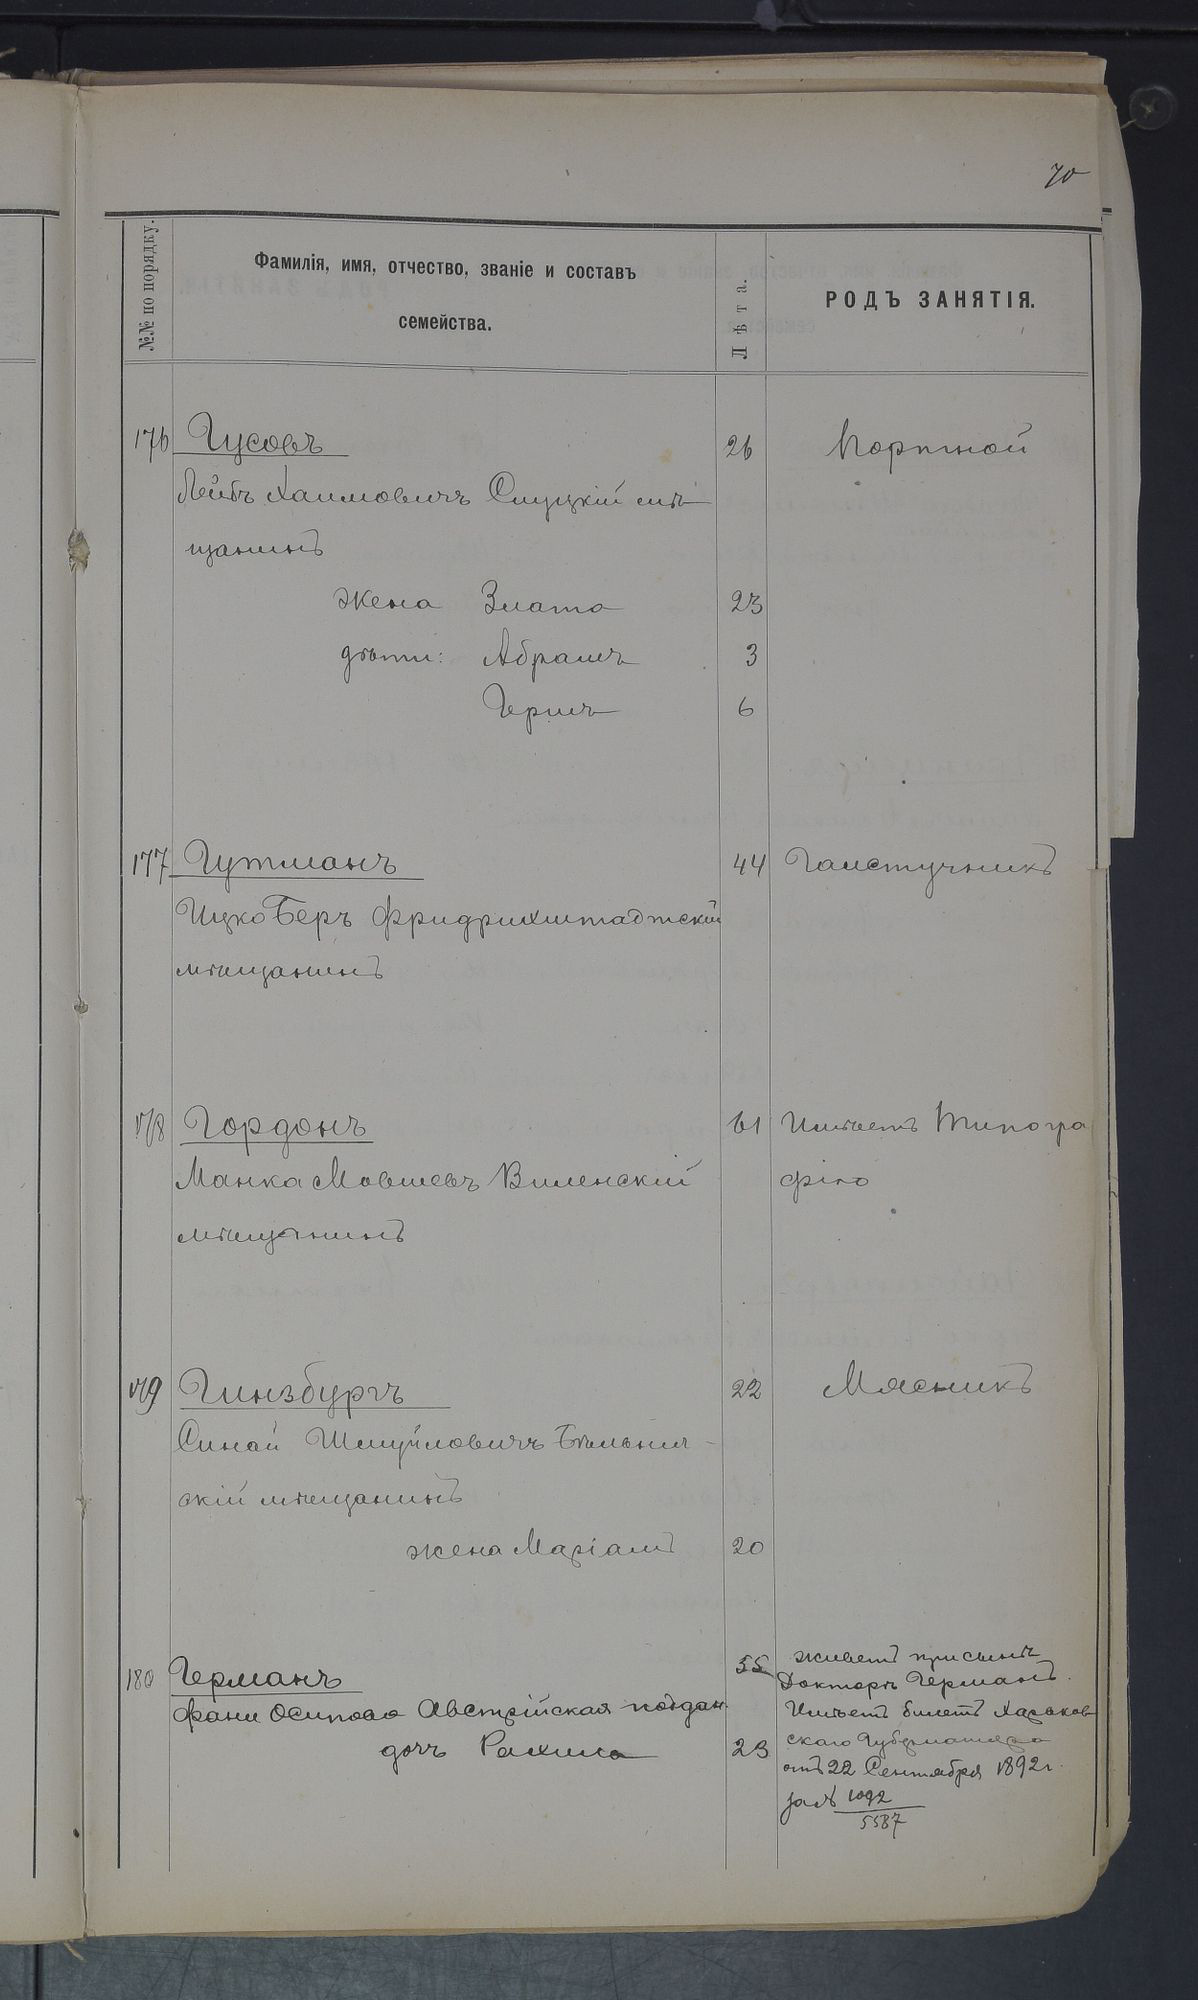 70
№№ по порядку.
Фамилія, имя, отчество, званіе и составъ
семейства.
Лѣта.
РОДЪ ЗАНЯТІЯ.
176 Гусовъ 26 Портной
Лейбъ Хаимовичъ Слуцкій мѣ
щанинъ
жена Злата 23
дѣти: Абрамъ 3
Гершъ 6
177 Гутманъ 44 Галстучникъ
Ицко Беръ Фридрихштадтскій
мѣщанинъ
178 Гордонъ 61 Имѣетъ Типогра
Манка Мовшевъ Виленскій фію
мѣщанинъ
179 Гинзбургъ 22 Мясникъ
Синай Шмуйловичъ
скій мѣщанинъ
жена Маріамъ 20
180 Германъ 55 живетъ при сынѣ
Докторѣ Германѣ.
Фани Осипова Австрійская поддан. Имѣетъ билетъ Харьков
дочь Рахиль 23 скаго Губернатора
отъ 22 Сентября 1892 г.
за № 1092
5587